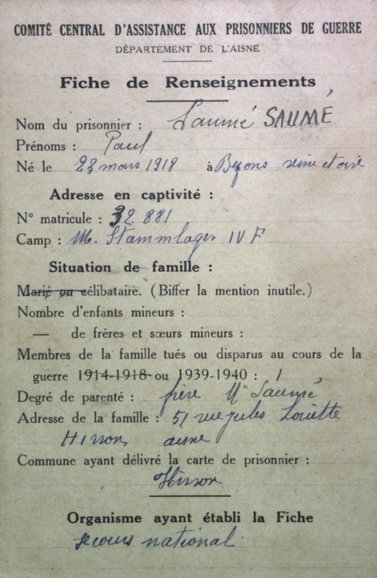 COMITÉ CENTRAL D'ASSISTANCE AUX PRISONNIERS DE GUERRE
DÉPARTEMENT DE L'AISNE
Fiche de Renseignements
Nom du prisonnier : Saumé SAUMÉ
Prénoms : Paul
Né le 23 mars 1918 à Bezons seine et oise
Adresse en captivité :
N° matricule : 32 881
Camp : M. Stammlager IV F
Situation de famille :
Marié ou célibataire. (Biffer la mention inutile.)
Nombre d'enfants mineurs :
— de frères et sœurs mineurs :
Membres de la famille tués ou disparus au cours de la
guerre 1914-1918 ou 1939-1940 : 1
Degré de parenté : frère Mr Saumé
Adresse de la famille : 51 rue jules
Hirson aisne
Commune ayant délivré la carte de prisonnier :
Hirson
Organisme ayant établi la Fiche
secours national